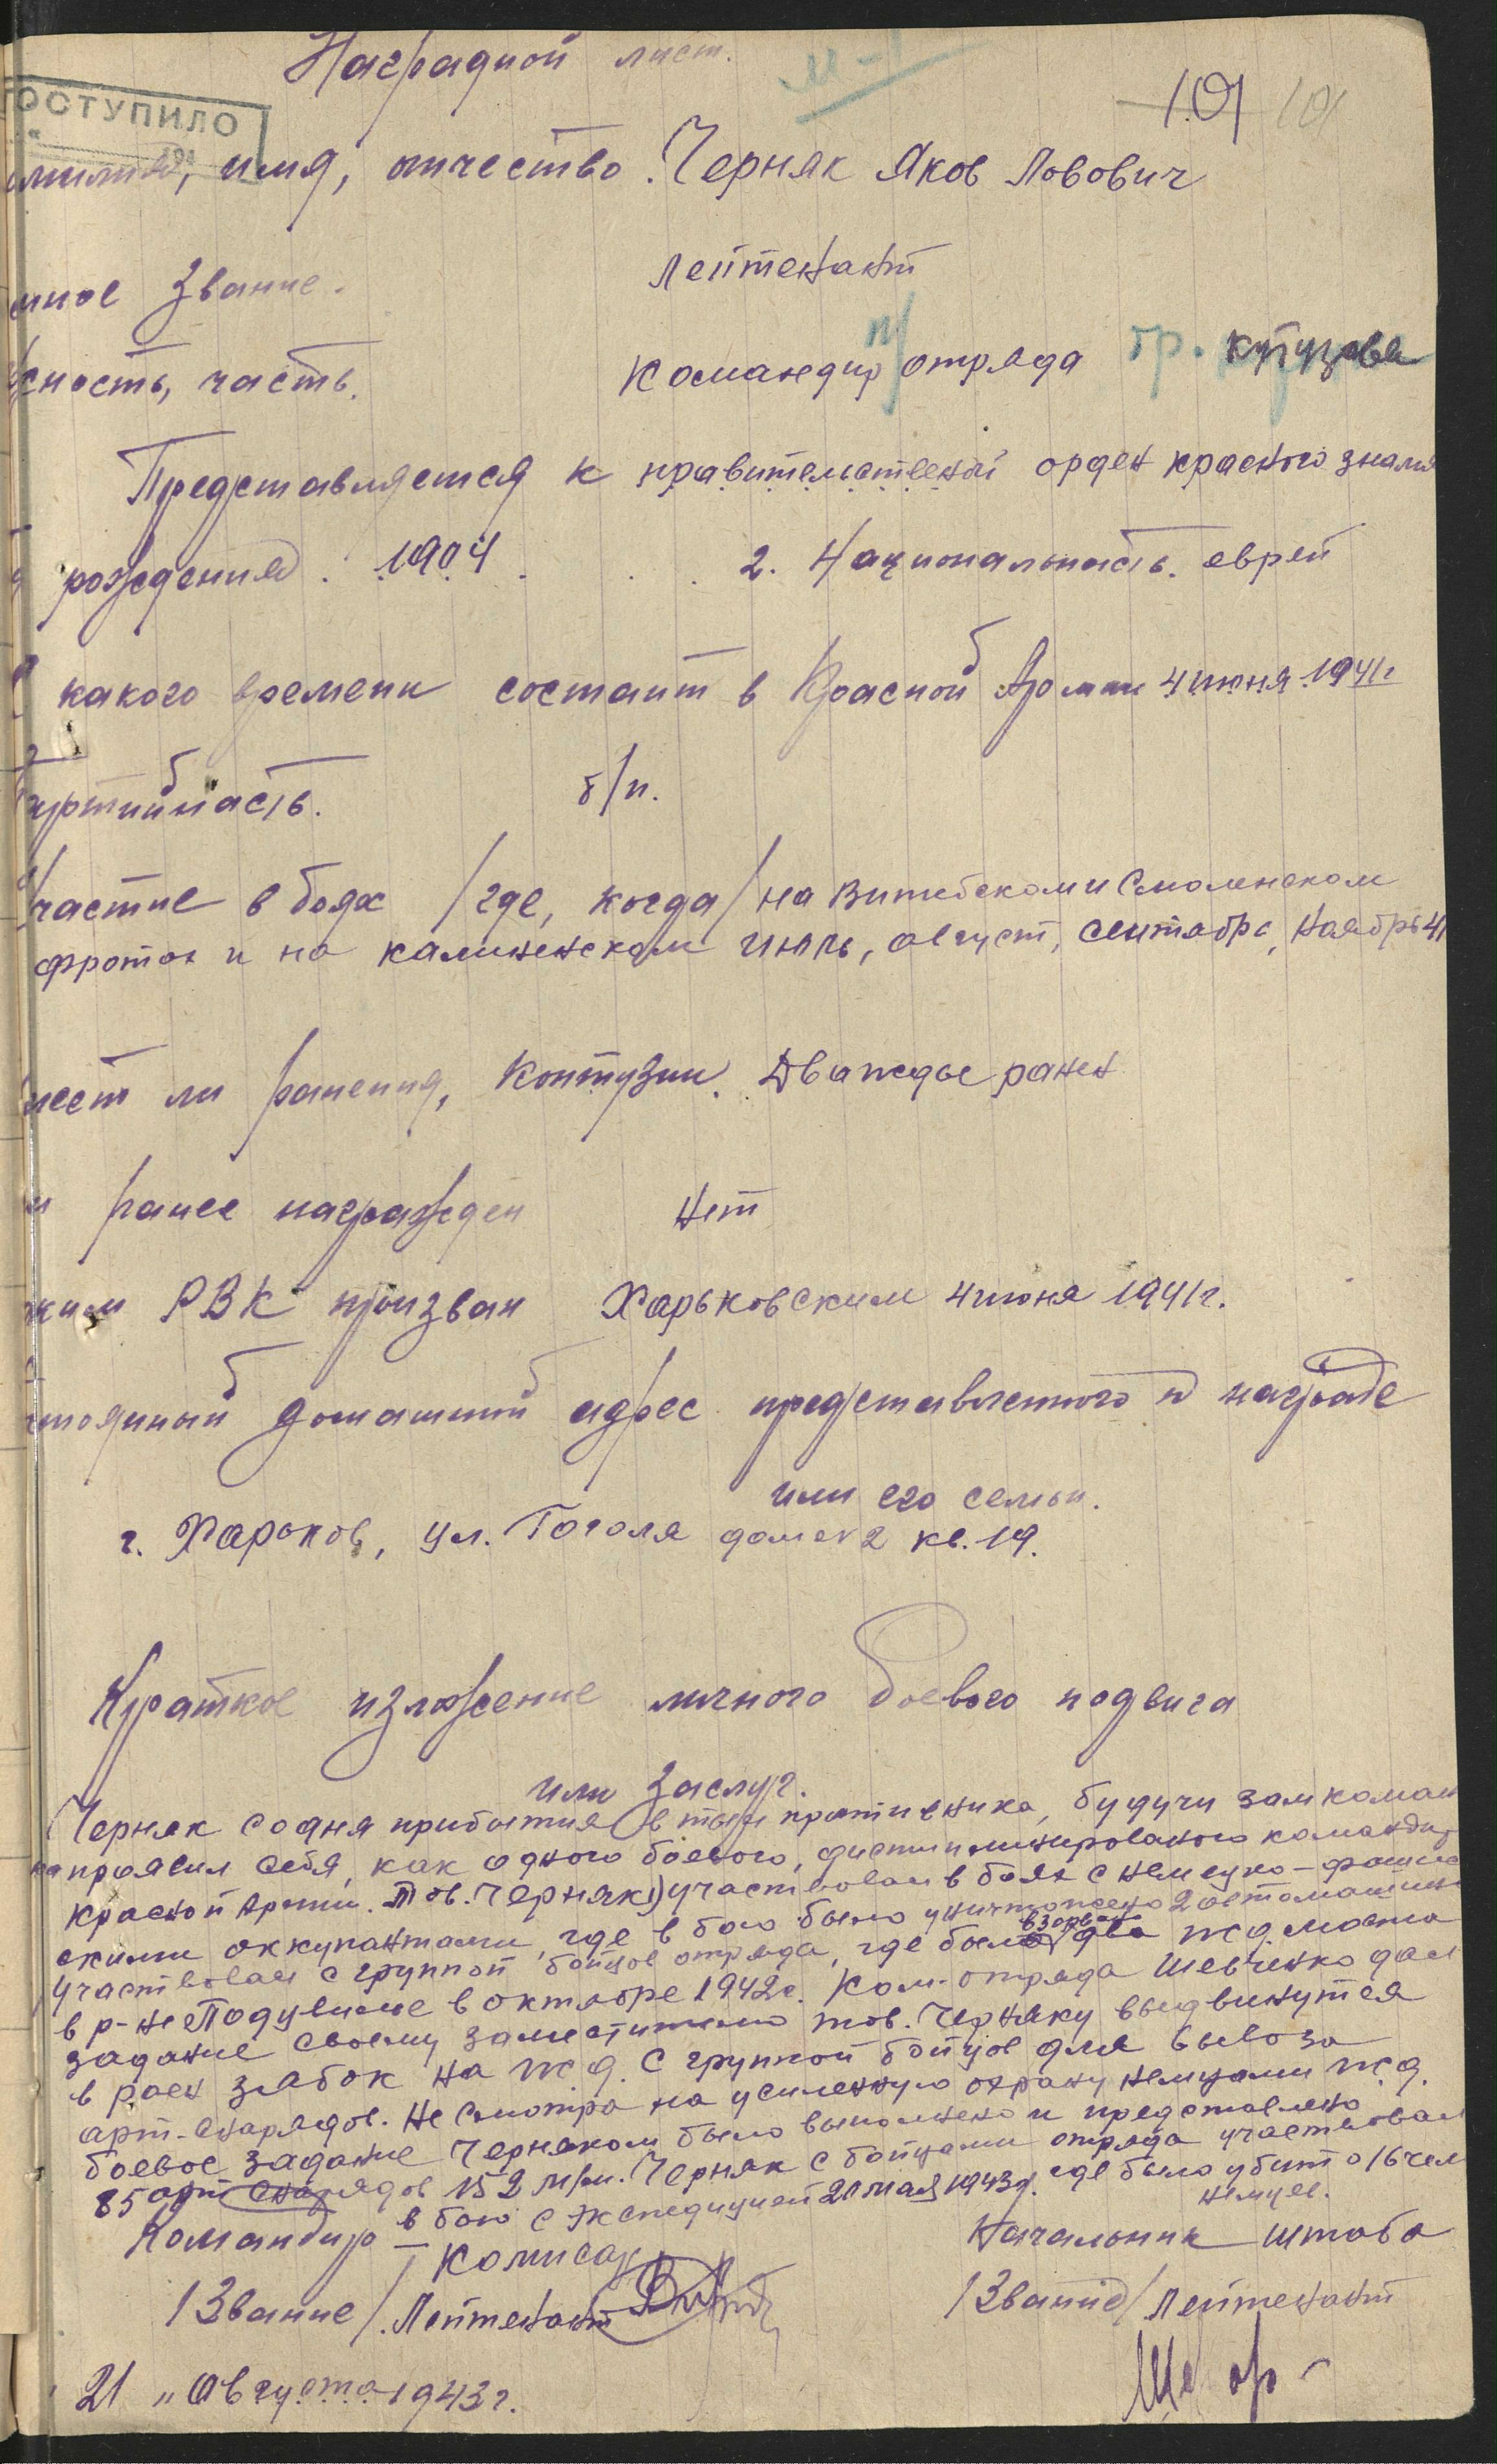 Наградной лист.
101 101
ПОСТУПИЛО
имя, отчество. Черняк Яков Ловович
звание. лейтенант
часть. командир п/отряда гр. Кутузова
Представляется к правительственой орден красного знамя
рождения. 1904. 2. Национальность. еврей
какого времени состоит в Красной Армии 4 июня 1941г
б/п.
участие в боях /где, когда/ на Витебском и Смоленском
фротах и на калиненском июль, август, сентябрь, ноябрь 41
ли ранения, контузии. Дважды ранен
ранее награжден нет
каким РВК призван Харьковским 4 июня 1941г.
домашний адрес представленного к награде
или его семьи.
г. Харьков, ул. Гоголя дом № 2 кв. 19.
Краткое изложение личного боевого подвига
или заслуг.
Черняк со дня прибытия в тыл противника, будучи зам коман
проявил себя, как одного боевого, дистиплинированого командир
красной Армии. Тов. Черняк 1) участвовал в боях с немецко-фашис
скими оккупантами, где в бою было уничтожено 2 автомашины
участвовал с группой бойцов отряда, где было взорвано два жд. моста
в р-не Подувилье в октябре 1942г. Ком. отряда Шевченко дал
задание своему заместителю тов. Черняку выдвинутся
в раен Зябок на жд. с группой бойцов для вывоза
арт-снарядов. Не смотря на усиленную охрану немцами жд.
боевое задание Черняком было выполнено и предоставлено
85 арт снарядов 152 м/м. Черняк с бойцами отряда участвовал
в бою с экспедицией 20 мая 1943г. где было убито 16 чел
немцев.
Командир — Комисар Начальник штаба
/Звание/ Лейтенант /Звание/ Лейтенант
21 „Августа 1943г.